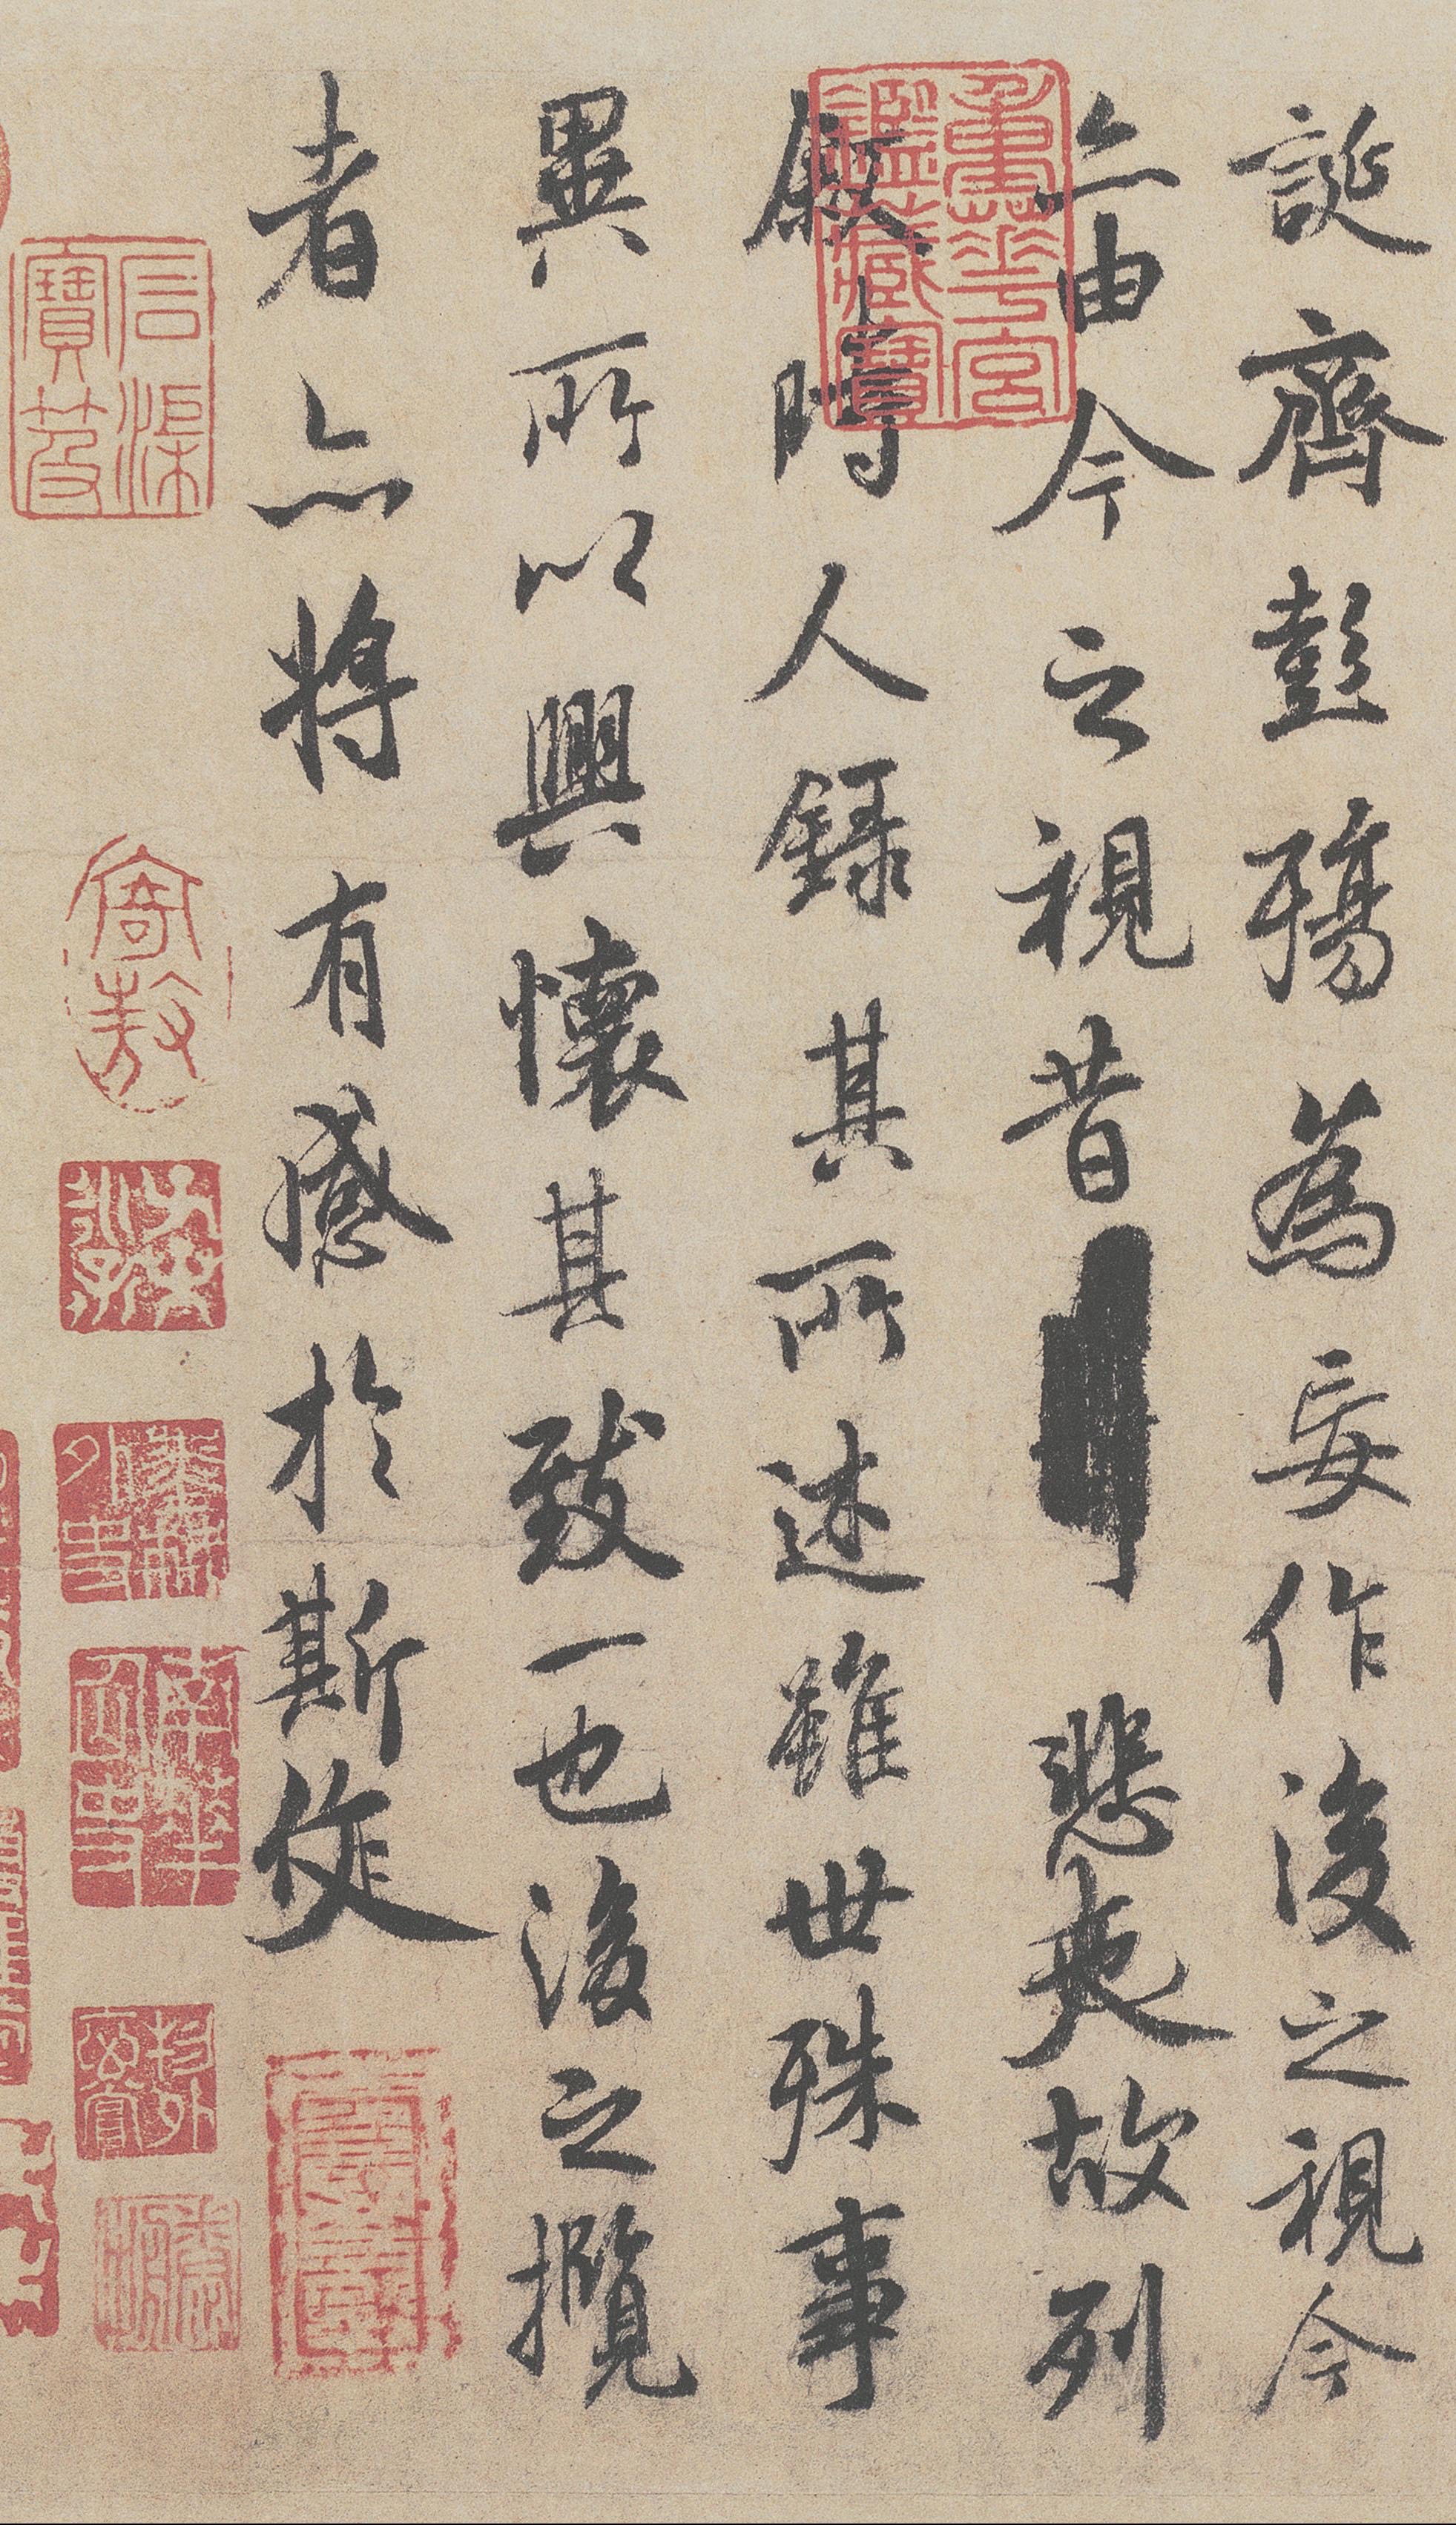 誕齊彭殤為妄作後之視今
亦由今之視昔悲夫故列
敘時人錄其所述雖世殊事
異所以興懷其致一也後之攬
者亦將有感於斯文
重華宮鑑藏寶
石渠寶笈
寄敖